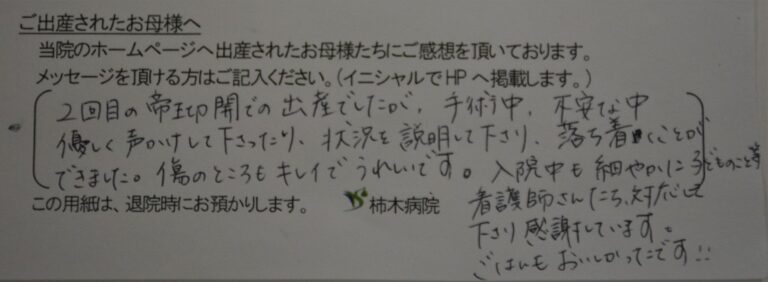 ご出産されたお母様へ
当院のホームページへ出産されたお母様たちにご感想を頂いております。
メッセージを頂ける方はご記入ください。(イニシャルでHPへ掲載します。)
2回目の帝王切開での出産でしたが、手術中、不安な中
優しく声かけして下さったり、状況を説明して下さり、落ち着くことが
できました。傷のところもキレイでうれしいです。入院中も細やかに子どものこと等
看護師さんたち、対応して
下さり感謝しています。
ごはんもおいしかったです!!
この用紙は、退院時にお預かりします。
柿木病院